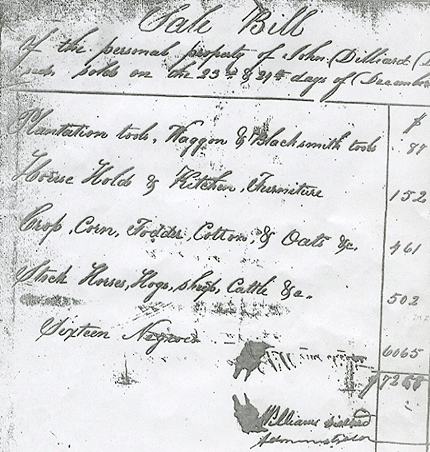 Sale Bill
Of the personal property of John Dilliard
sold on the 23d & 24th days of December
$
Plantation tools, Waggon & Blacksmith tools 87
House Holds & Kitchen Furniture 152
Crop, Corn, Fodder, Cotton, & Oats &c. 461
Stock Horses, Hogs, sheep, Cattle &c. 502
Sixteen Negroes 6065
$7268
William Dilliard
Administrator